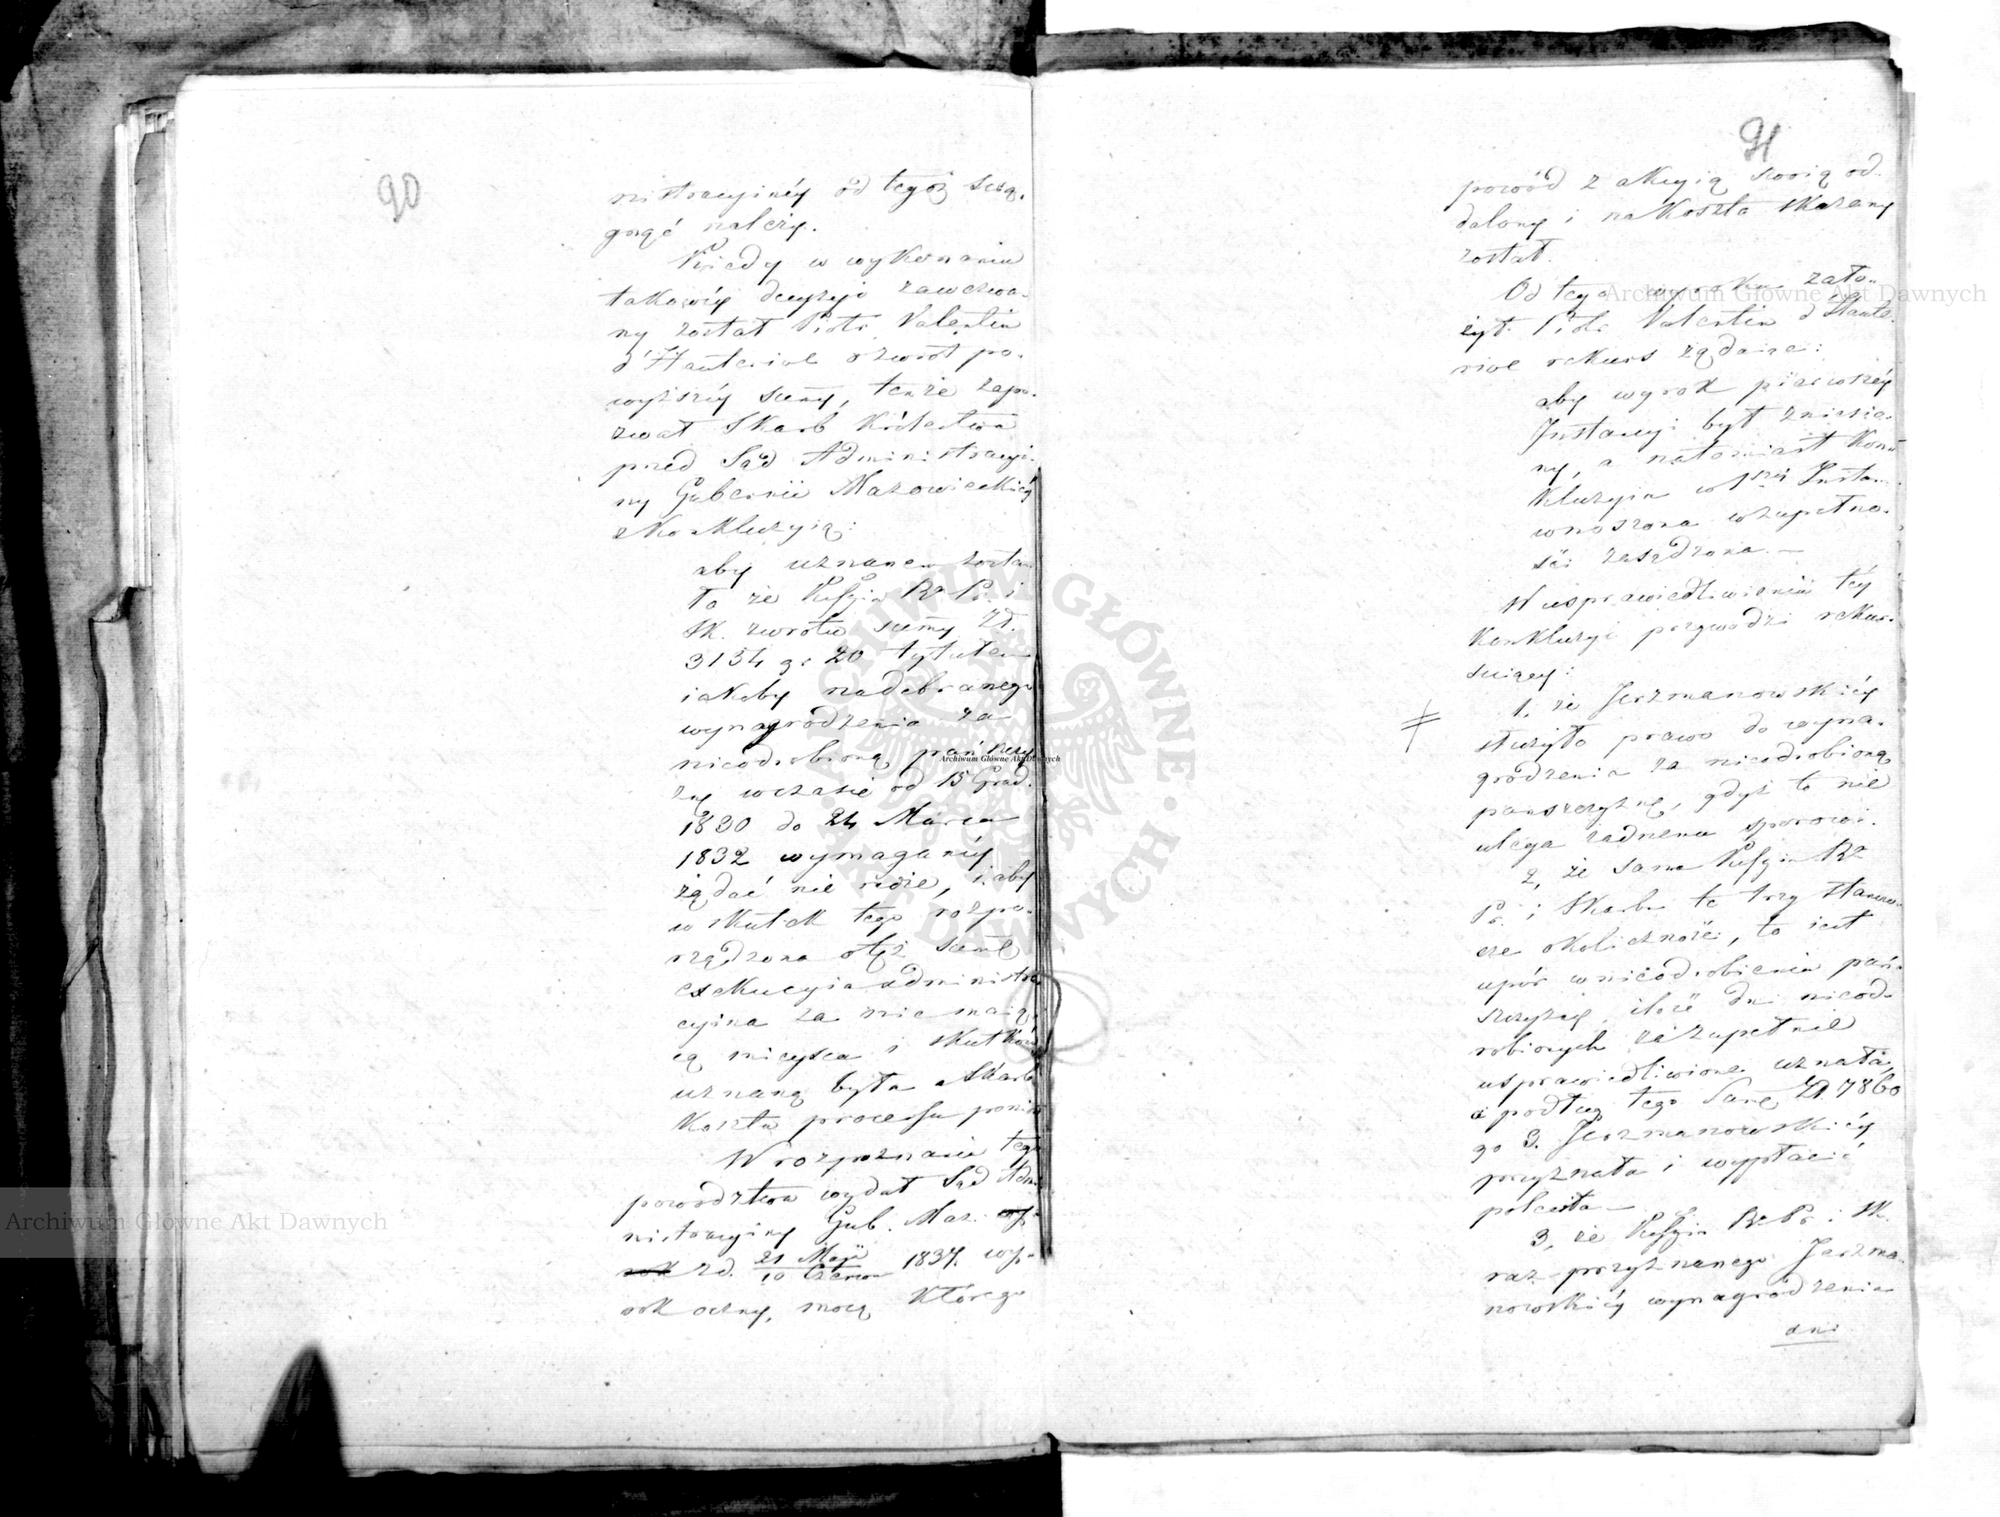 90
nistracyinéy od tegoż ścią-
gnąć należy.
Kiedy w wykonaniu
takowéy decyzyi zawezwa-
ny został Piotr Valentin
d'Hauterive o zwrot po-
wyższéy summy, tenże zapo-
zwał Skarb Królestwa
przed Sąd Administracyi-
ny Gubernii Mazowieckiéy
z Konkluzyią:
aby uznanem zosta-
ło że Kssyia Rz. Pr. i
Sk. zwrotu summy Zł.
3154 gr 20 tytułem
iakoby nadebranego
wynagrodzenia za
nieodrobioną pańszczy-
znę w czasie od 15 Grud.
1830 do 24 Marca
1832 wymaganéy
żądać nie może, i aby
w skutek tego rozpo-
rządzona o też summę
exekucyia administra-
cyina za nie maią-
cą mieysca i skutków
uznaną była a Skarb
koszta processu poniósł
W rozpoznaniu tego
powództwa wydał Sąd Admi-
nistracyiny Gub. Maz. wy-
rok z d. 21 Maja / 10 Czerwca 1837. wy-
rok oczny, mocą którego
91
powód z akcyią swoią od-
dalony i na koszta skazany
został.
Od tego wyroku zało-
żył Piotr Valentin d'Haute-
rive rekurs żądaiąc:
aby wyrok pierwszéy
Instancyi był zniesio-
ny, a natomiast Kon-
kluzyia w 1széj Insta.
wnoszona w zupełno-
ści zasądzona. —
W usprawiedliwieniu téy
Konkluzyi przywodzi rekur-
suiący:
1, że Jerzmanowskiéy
służyło prawo do wyna-
grodzenia za nieodrobioną
pańszczyznę, gdyż to nie
ulega żadnemu sporowi.
2, że sama Kssyia Rz
Pr. i Skarbu te trzy stanow-
cze okoliczności, to iest
upór w nieodrobieniu pań-
szczyzny, ilość dni nieod-
robionych za zupełnie
usprawiedliwione uznała,
a podług tego Sumę Zł. 7860
gr 3. Jerzmanowskiéy
przyznała i wypłacić
poleciła —
3, że Kssyia Rz. Pr. i Sk.
raz przyznanego Jerzma-
nowskiéy wynagrodzenia
ani
Archiwum Główne Akt Dawnych
Archiwum Główne Akt Dawnych
Archiwum Główne Akt Dawnych
ARCHIWUM GŁÓWNE AKT DAWNYCH